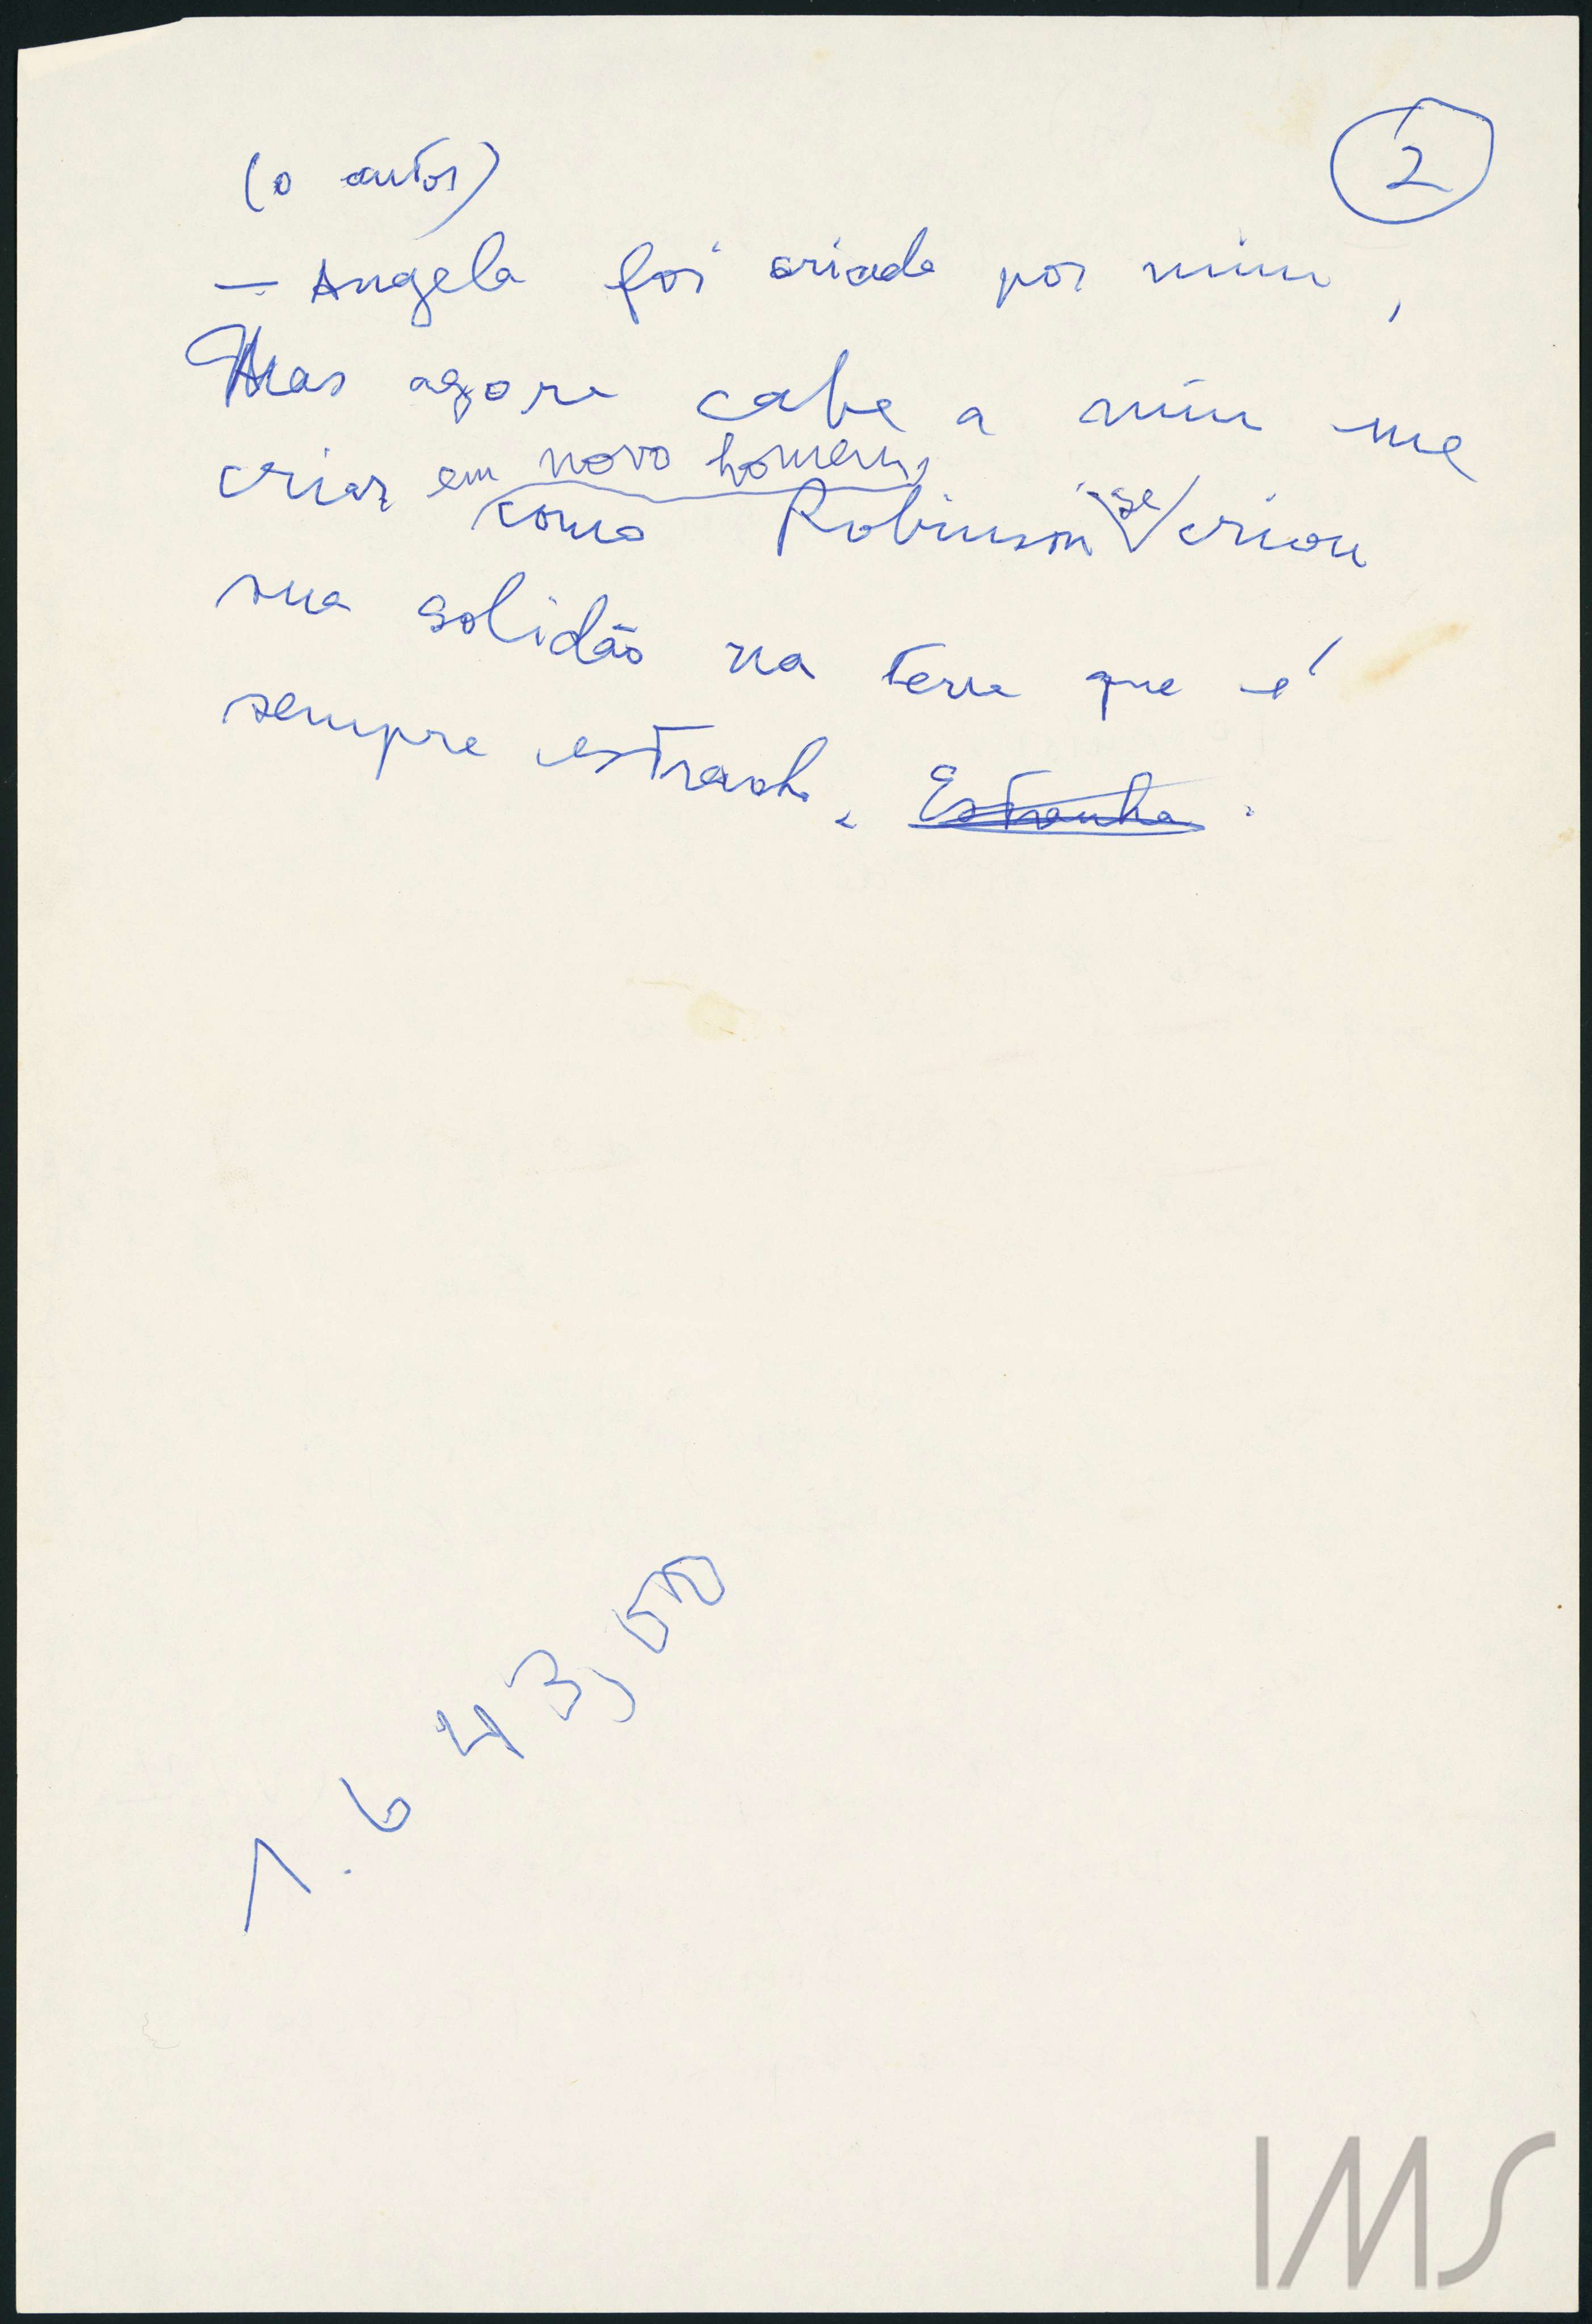 (o autor)
2
— Angela foi criada por mim,
Mas agora cabe a mim me
criar em novo homem,
como Robinson se criou
sua solidão na terra que é
sempre estranha. Estranha.
1.643,00
IMS